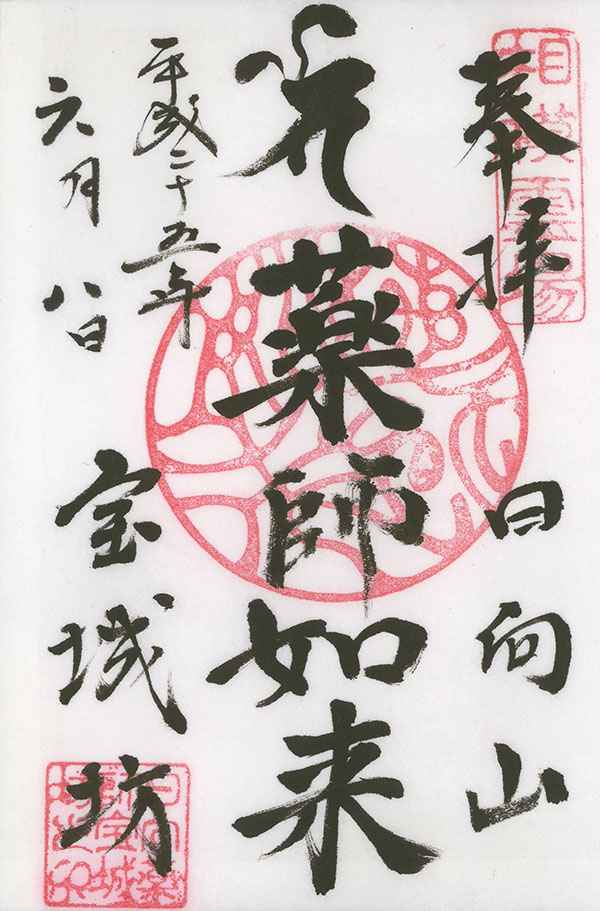 奉拝
日向山
薬師如来
平成二十五年
六月八日
宝城坊